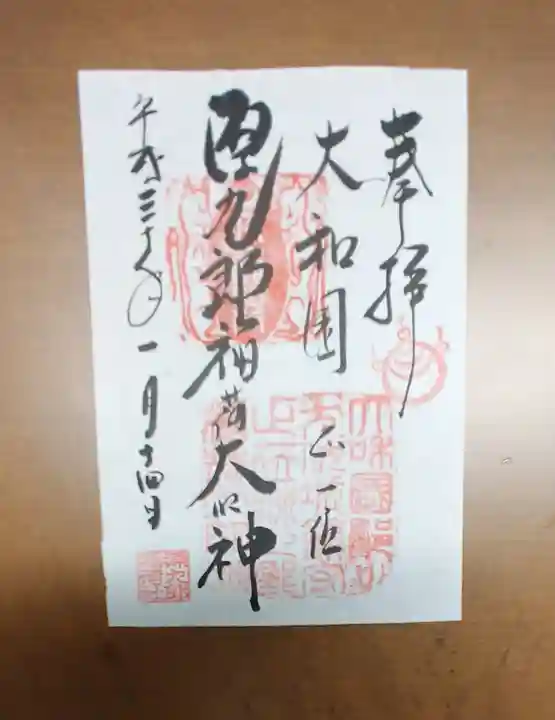 奉拝
大和国 正一位
源九郎稲荷大明神
平成三十年一月十四日